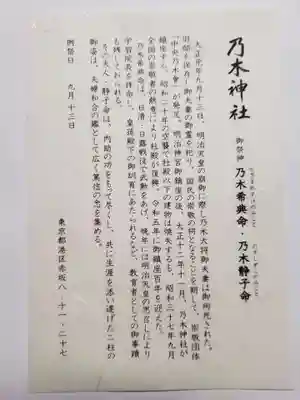 乃木神社
御祭神 乃木希典命・乃木静子命
大正元年九月十三日、明治天皇の崩御に際し乃木大将御夫妻は御殉死された。
旧邸を保存し御夫妻の御霊を祀り、国民の崇敬の祠となることを期して、崇敬団体
「中央乃木會」が発足。明治神宮御鎮座の後、大正十二年十一月、乃木神社が
鎮座する。昭和二十年の空襲で社殿以下の建物は焼失するも、昭和三十七年九月
全国の崇敬者の熱意により社殿が復興、令和五年に御鎮座百年を迎えた。
乃木希典命は、日清・日露戦役で武勲をあげ、晩年には明治天皇の思召しにより
学習院長を拝命し、皇孫殿下の御訓育にあたられるなど、教育者としての御事蹟
も残しておられる。
令夫人・静子命は、内助の功をもって尽くし、共に生涯を添い遂げた二柱の
御姿は、夫婦和合の鑑として広く篤信の念を集める。
例祭日 九月十三日
東京都港区赤坂八-十一-二十七